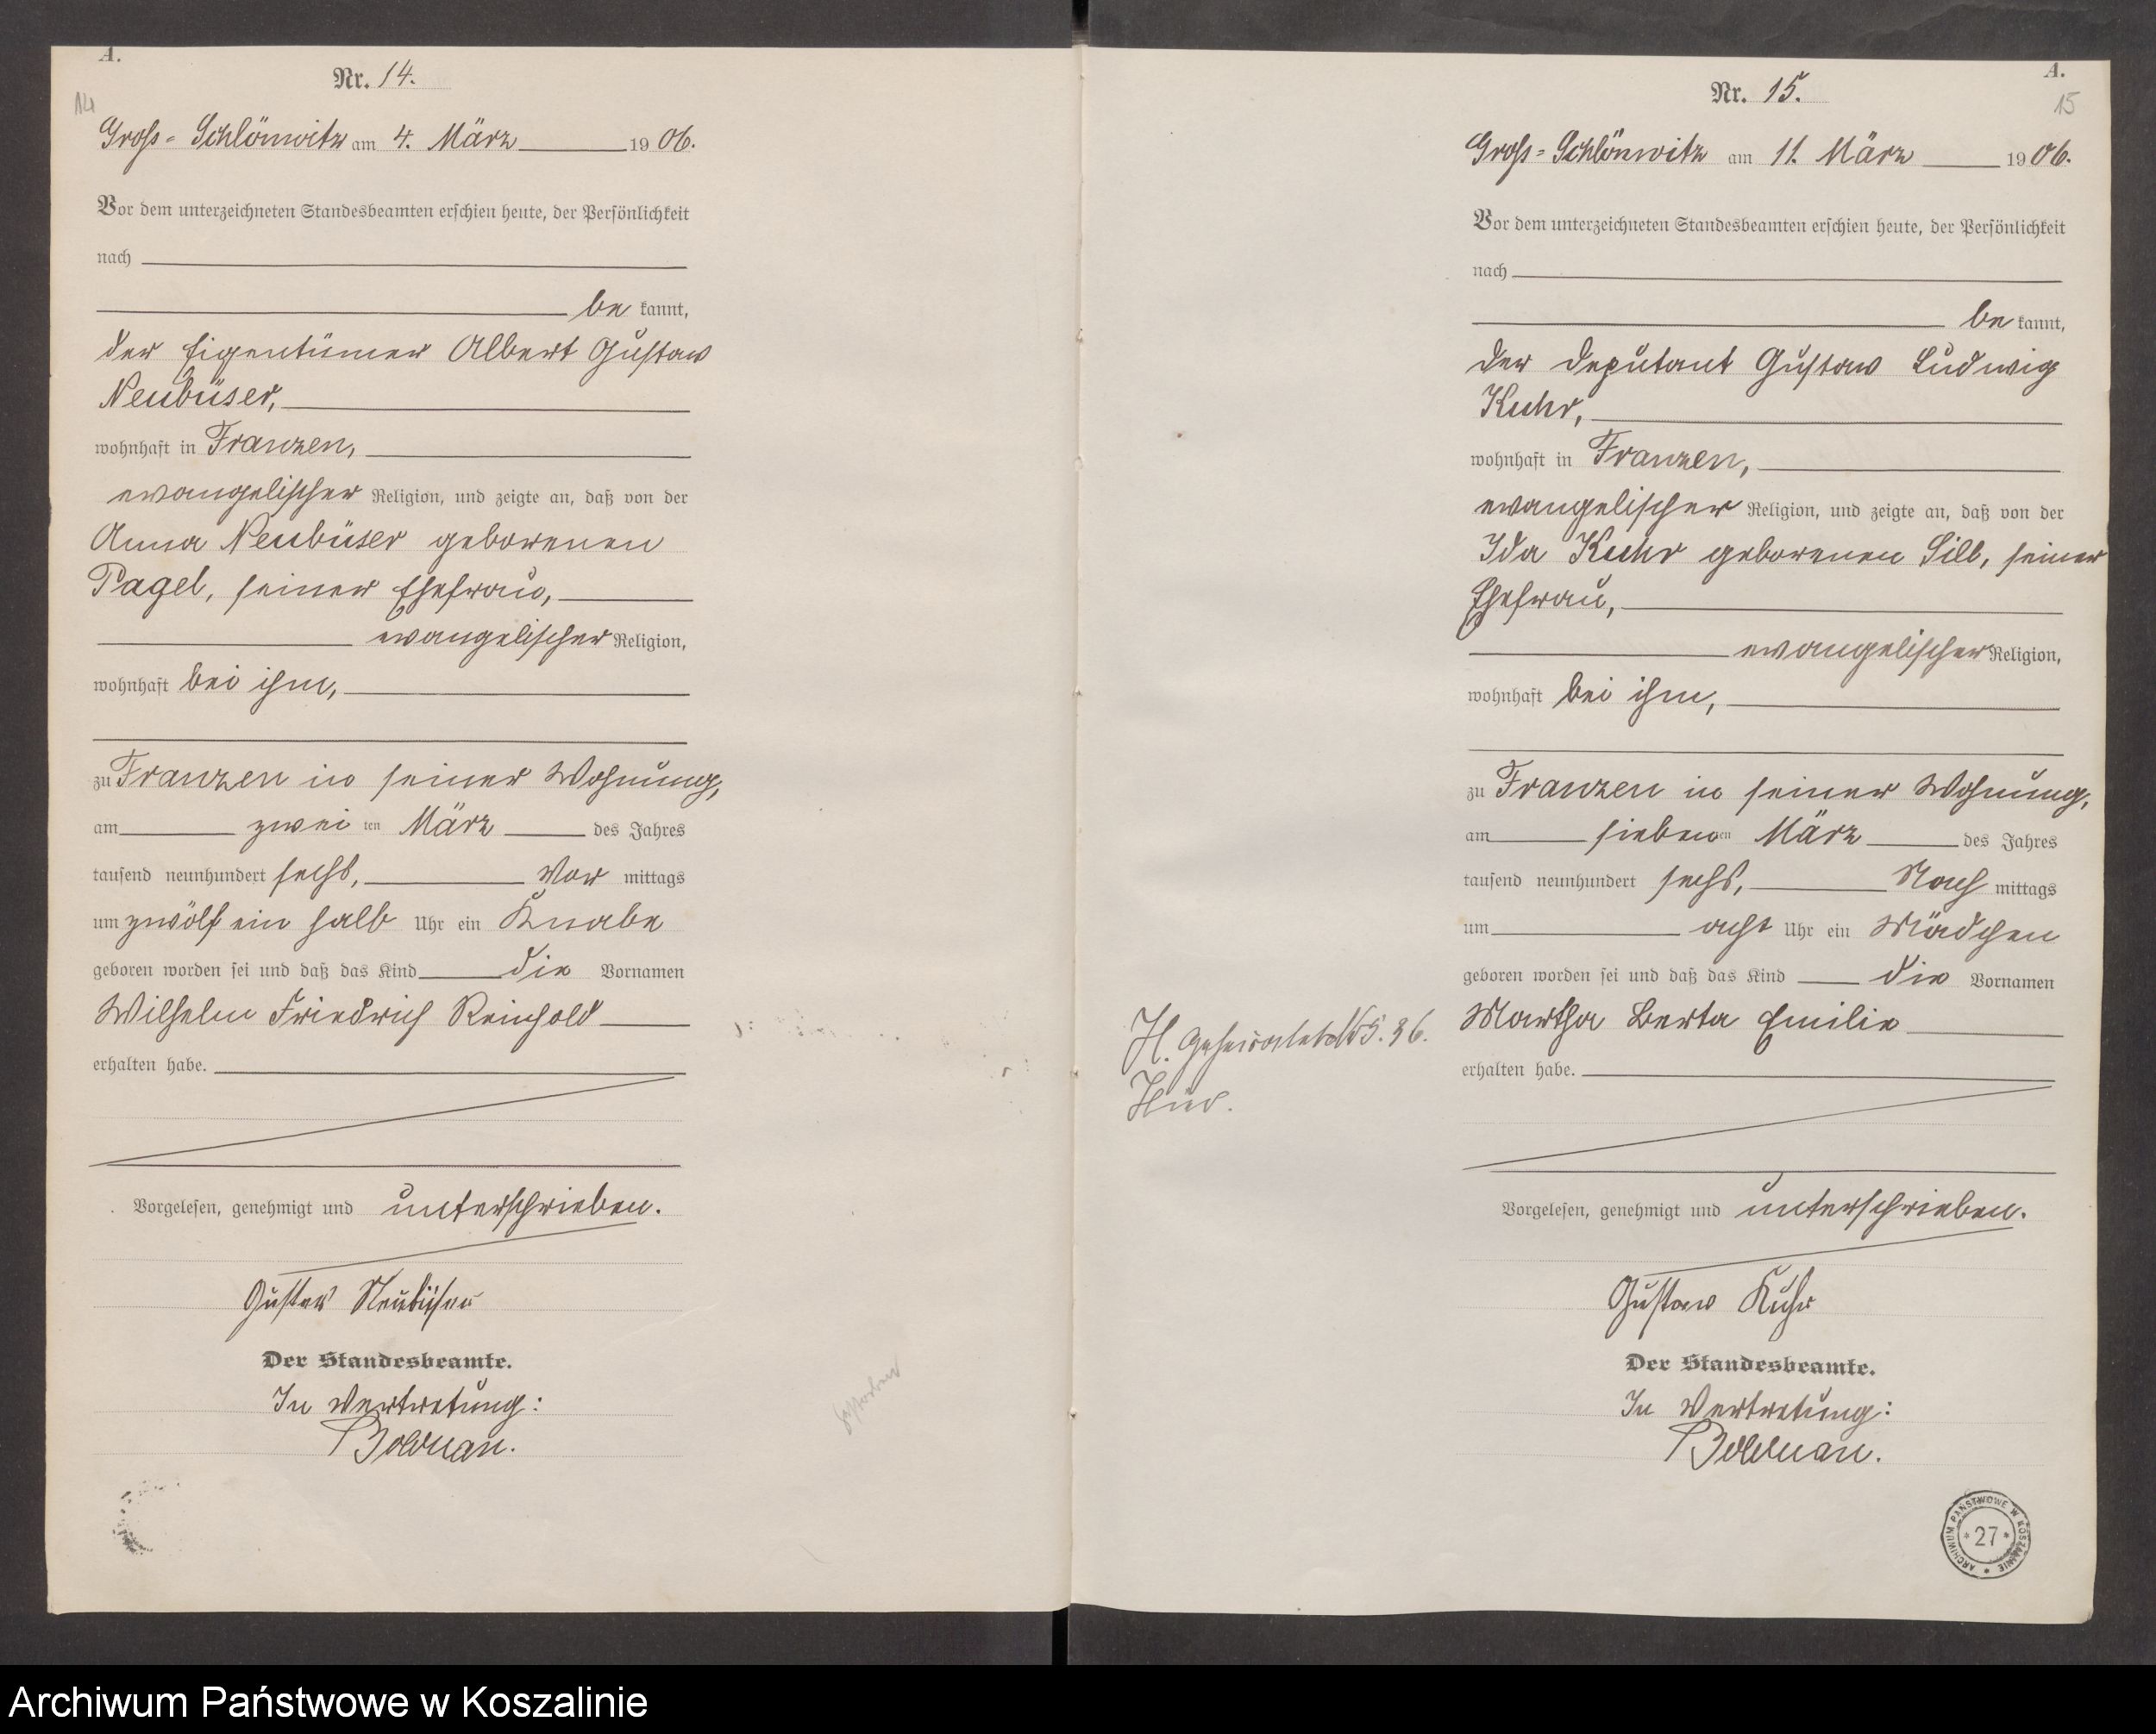 A.
14
Nr. 14.
Gross-Schlönwitz am 4. März 1906.
Vor dem unterzeichneten Standesbeamten erschien heute, der Persönlichkeit
nach
be kannt,
der Eigentümer Albert Gustav
Neubüser,
wohnhaft in Franzen,
evangelischer Religion, und zeigte an, daß von der
Anna Neubüser geborenen
Pagel, seiner Ehefrau,
evangelischer Religion,
wohnhaft bei ihm,
zu Franzen in seiner Wohnung,
am zwei ten März des Jahres
tausend neunhundert sechs, Vor mittags
um zwölf ein halb Uhr ein Knabe
geboren worden sei und daß das Kind die Vornamen
Wilhelm Friedrich Reinhold
erhalten habe.
Vorgelesen, genehmigt und unterschrieben.
Gustav Neubüser
Der Standesbeamte.
In Vertretung:
Bolduan.
gestorben
A.
15
Nr. 15.
Gross-Schlönwitz am 11. März 1906.
Vor dem unterzeichneten Standesbeamten erschien heute, der Persönlichkeit
nach
be kannt,
der Deputant Gustav Ludwig
Kuhr,
wohnhaft in Franzen,
evangelischer Religion, und zeigte an, daß von der
Ida Kuhr geborenen Sill, seiner
Ehefrau,
evangelischer Religion,
wohnhaft bei ihm,
zu Franzen in seiner Wohnung,
am sieben ten März des Jahres
tausend neunhundert sechs, Nach mittags
um acht Uhr ein Mädchen
geboren worden sei und daß das Kind die Vornamen
Martha Berta Emilie
erhalten habe.
H. Geheiratet 5.36.
Vorgelesen, genehmigt und unterschrieben.
Gustav Kuhr
Der Standesbeamte.
In Vertretung:
Bolduan.
ARCHIWUM PAŃSTWOWE W KOSZALINIE
27
Archiwum Państwowe w Koszalinie